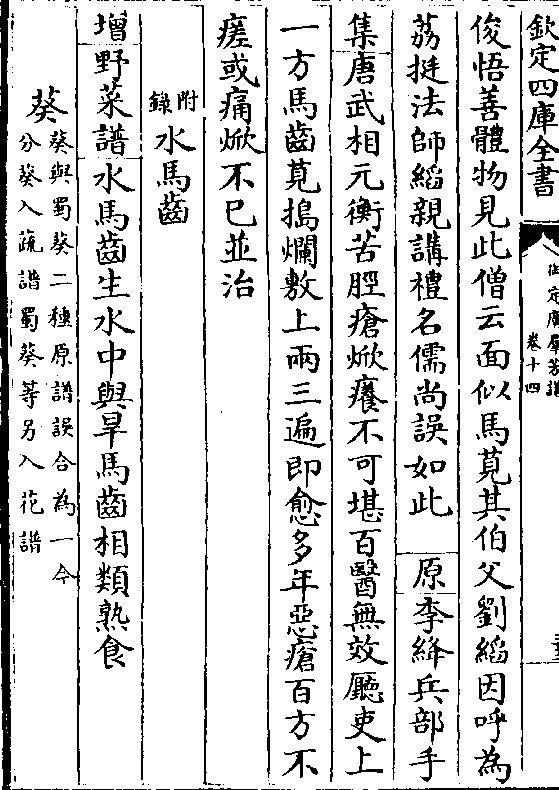 欽定四庫全書
御定廣羣芳譜
卷十四
俊悟善體物見此僧云面似馬莧其伯父劉縚因呼為
荔挺法師縚親講禮名儒尚誤如此 原李絳兵部手
集唐武相元衡苦脛瘡焮癢不可堪百醫無效廳吏上
一方馬齒莧搗爛敷上兩三遍即愈多年惡瘡百方不
瘥或痛焮不已並治
附錄水馬齒
增野菜譜水馬齒生水中與旱馬齒相類熟食
葵葵與蜀葵二種原譜誤合為一今
分葵入蔬譜蜀葵等另入花譜